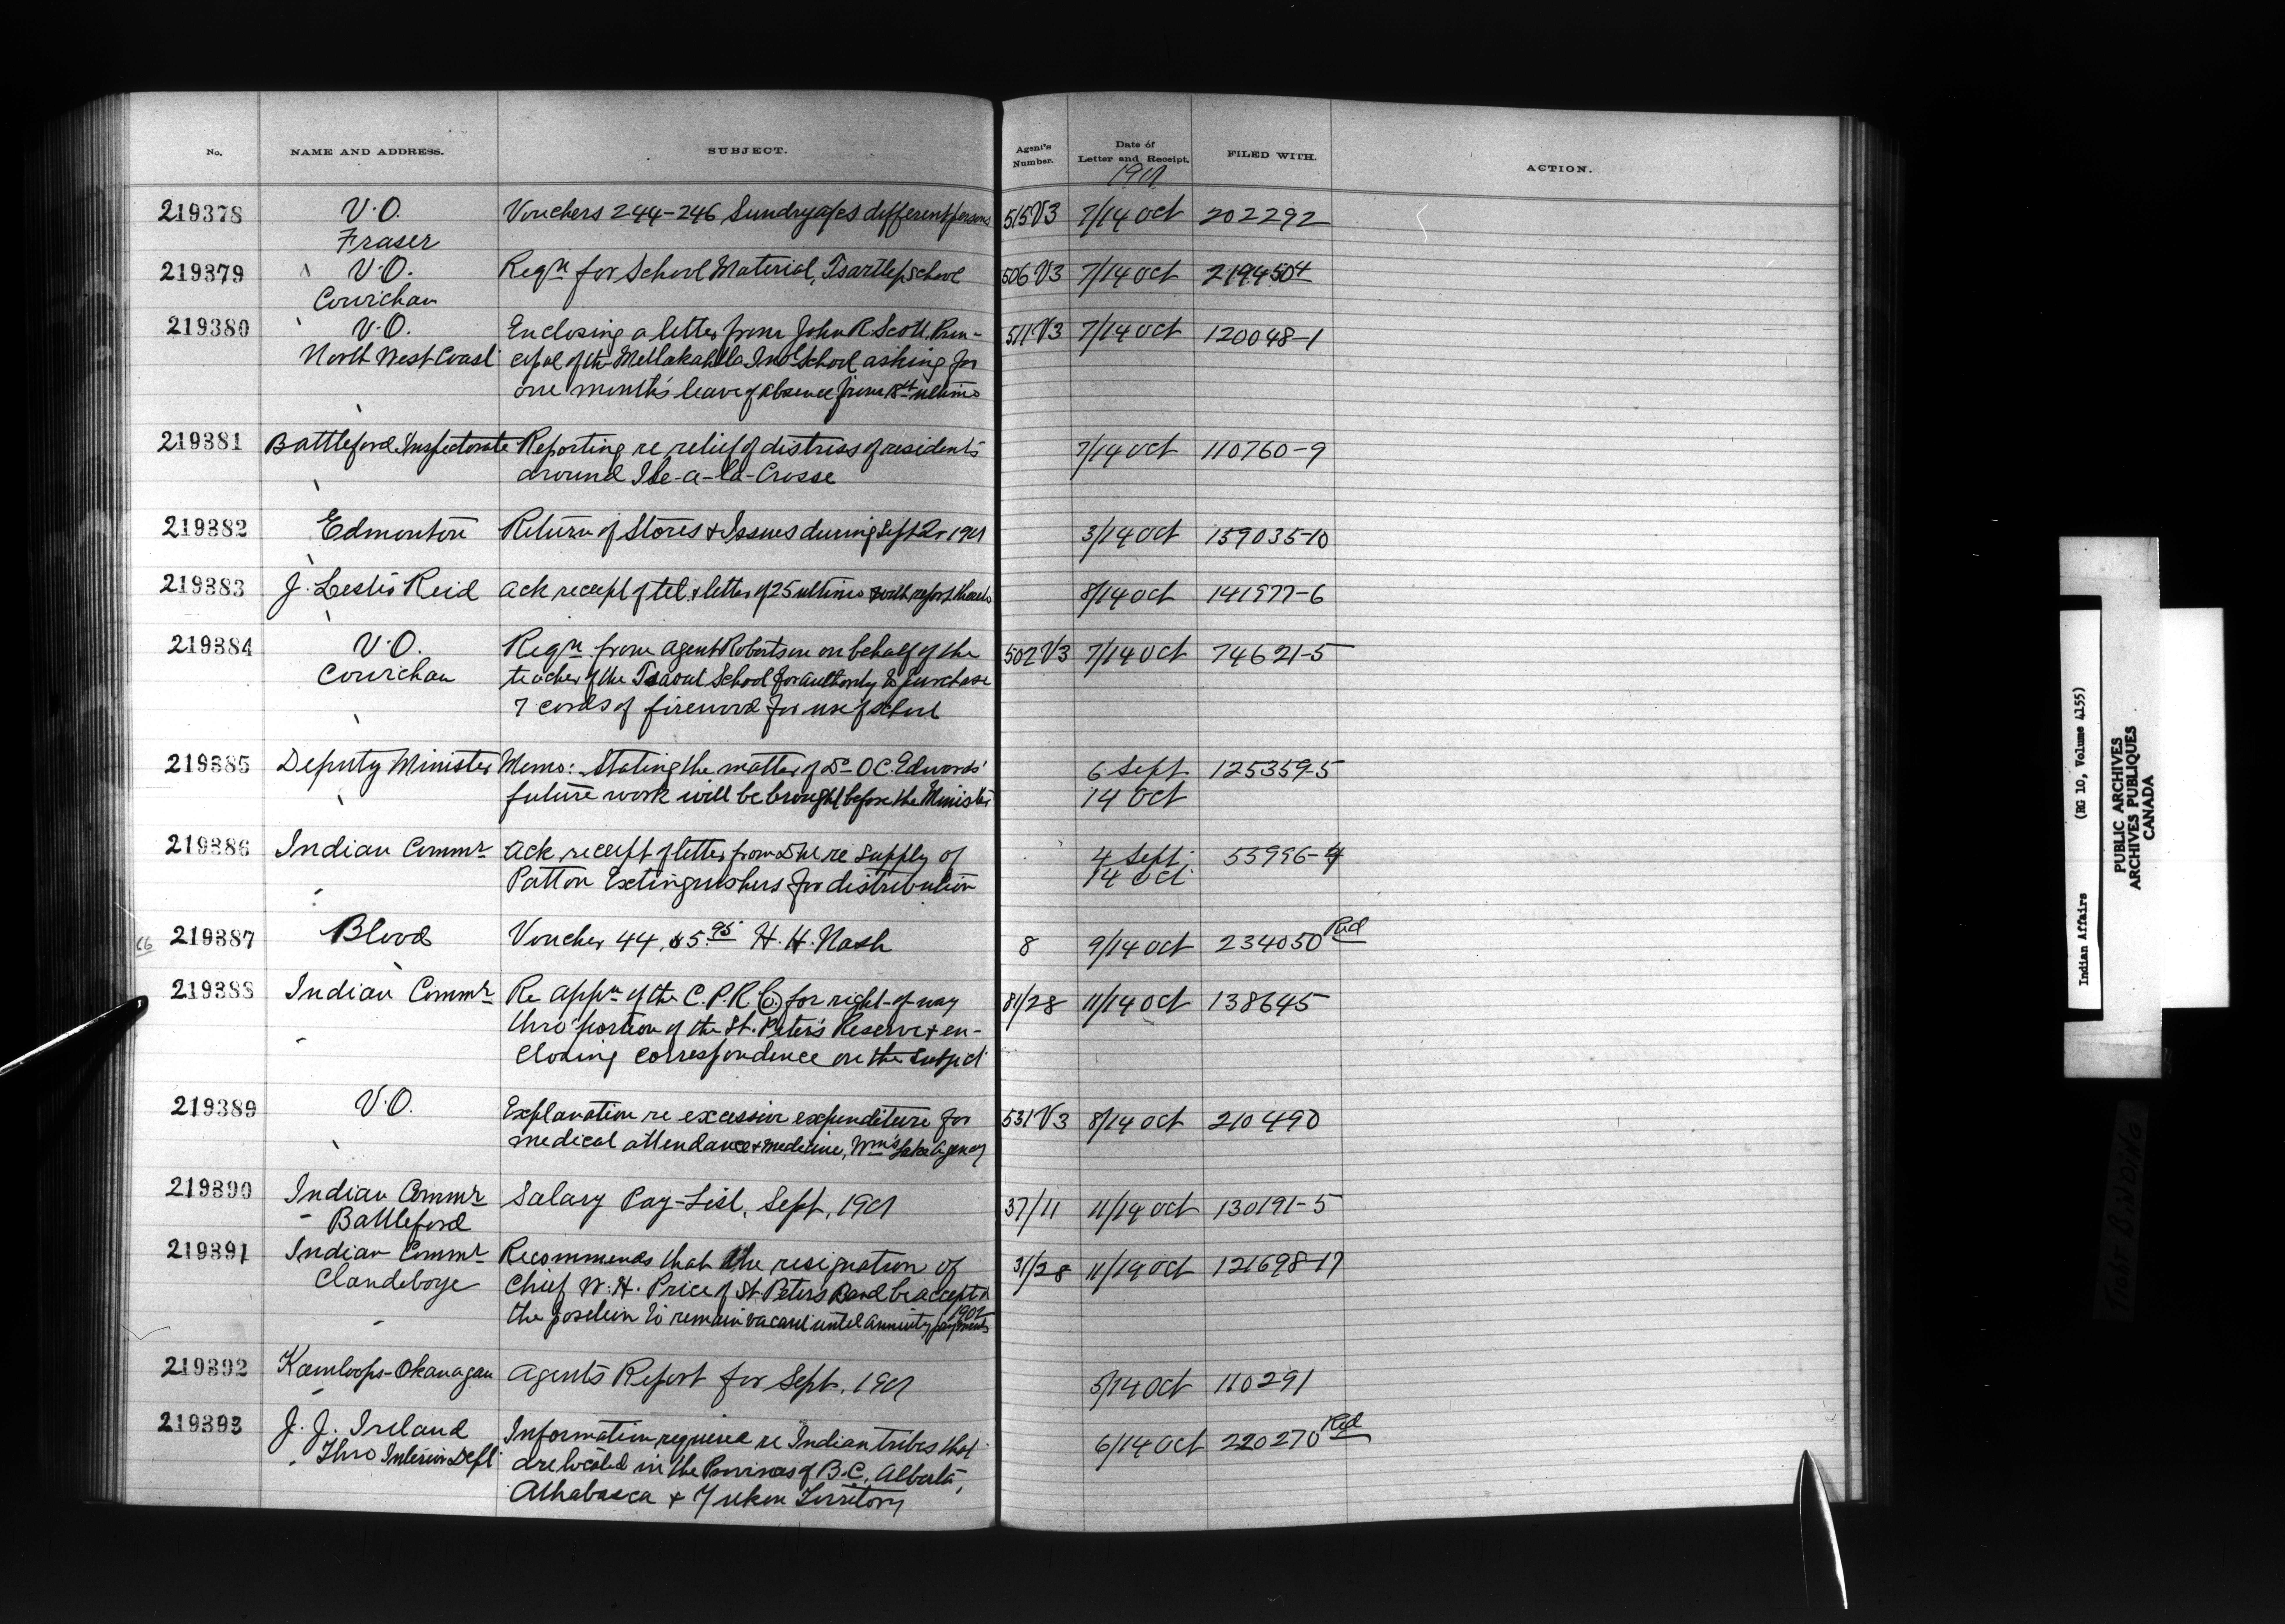 No. NAME AND ADDRESS. SUBJECT. Agent's Number. Date of Letter and Receipt. FILED WITH. ACTION.
1901
219378 V.O. Vouchers 244-246 Sundry a/cs different persons 515V3 7/14 Oct 202292
Fraser
219379 V.O. Reqn for School Material, Tsartlip School 506 V3 7/14 Oct
Cowichan
219380 V.O. Enclosing a letter from John R. Scott, Prin- 511V3 7/14 Oct 120048-1
North West Coast cipal of the Metlakahtla Ind'l School asking for
one month's leave of absence from 18th ultimo
219381 Battleford Inspectorate Reporting re relief of distress of residents 7/14 Oct 110760-9
around Ile-a-la-Crosse
219382 Edmonton Return of Stores & Issues during Sept Qr 1901 3/14 Oct 159035-10
219383 J. Lestis Reid Ack receipt of tel. & letter of 25 ultimo with report thereto 8/14 Oct 141977-6
219384 V.O. Reqn from Agent Robertson on behalf of the 502 V3 7/14 Oct 74621-5
Cowichan teacher of the Tsaout School for authority to purchase
7 cords of firewood for use of school
219385 Deputy Minister Memo: Stating the matter of Dr O.C. Edwards' 6 Sept 125359-5
future work will be brought before the Minister 14 Oct
219386 Indian Commr Ack receipt of letter from DM re supply of 4 Sept 55996-4
Patton Extinguishers for distribution 14 Oct
219387 Blood Voucher 44, $5.95 H. H. Nash 8 9/14 Oct 234050 Red
219388 Indian Commr Re appn of the C.P.R. Co. for right-of-way 81/28 11/14 Oct 138645
thro' portion of the St. Peter's Reserve & en-
closing correspondence on the subject
219389 V.O. Explanation re excessive expenditure for 531V3 8/14 Oct 210490
medical attendance & medicine, Wm's Lake Agency
219390 Indian Commr Salary Pay-List, Sept, 1901 37/11 11/14 Oct 130191-5
Battleford
219391 Indian Commr Recommends that the resignation of 31/28 11/14 Oct 121698-17
Clandeboye Chief W. H. Price of St Peters Band be accepted
the position to remain vacant until annuity payments 1902
219392 Kamloops-Okanagan Agents Report for Sept, 1901 5/14 Oct 110291
219393 J. J. Ireland Information required re Indian tribes that 6/14 Oct 220270 Red
Thro Interior Dept are located in the Provinces of B.C., Alberta,
Athabasca & Yukon Territory
Indian Affairs (RG 10, Volume 4155)
PUBLIC ARCHIVES
ARCHIVES PUBLIQUES
CANADA
TIGHT BINDING